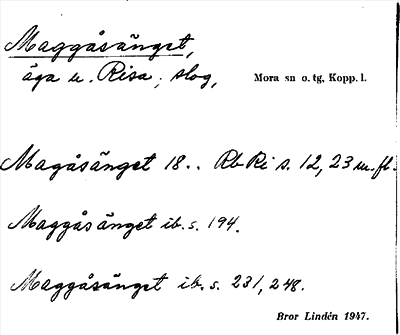 Maggåsänget,
äga u. Risa; slog,
Mora sn o. tg, Kopp. l.
Magåsänget 18.. Rb Ri s. 12, 23 m. fl.
Maggåsänget ib. s. 194.
Maggåsänget ib. s. 231, 248.
Bror Lindén 1947.